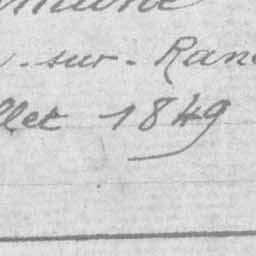 mmune
-sur-Ran
llet 1849